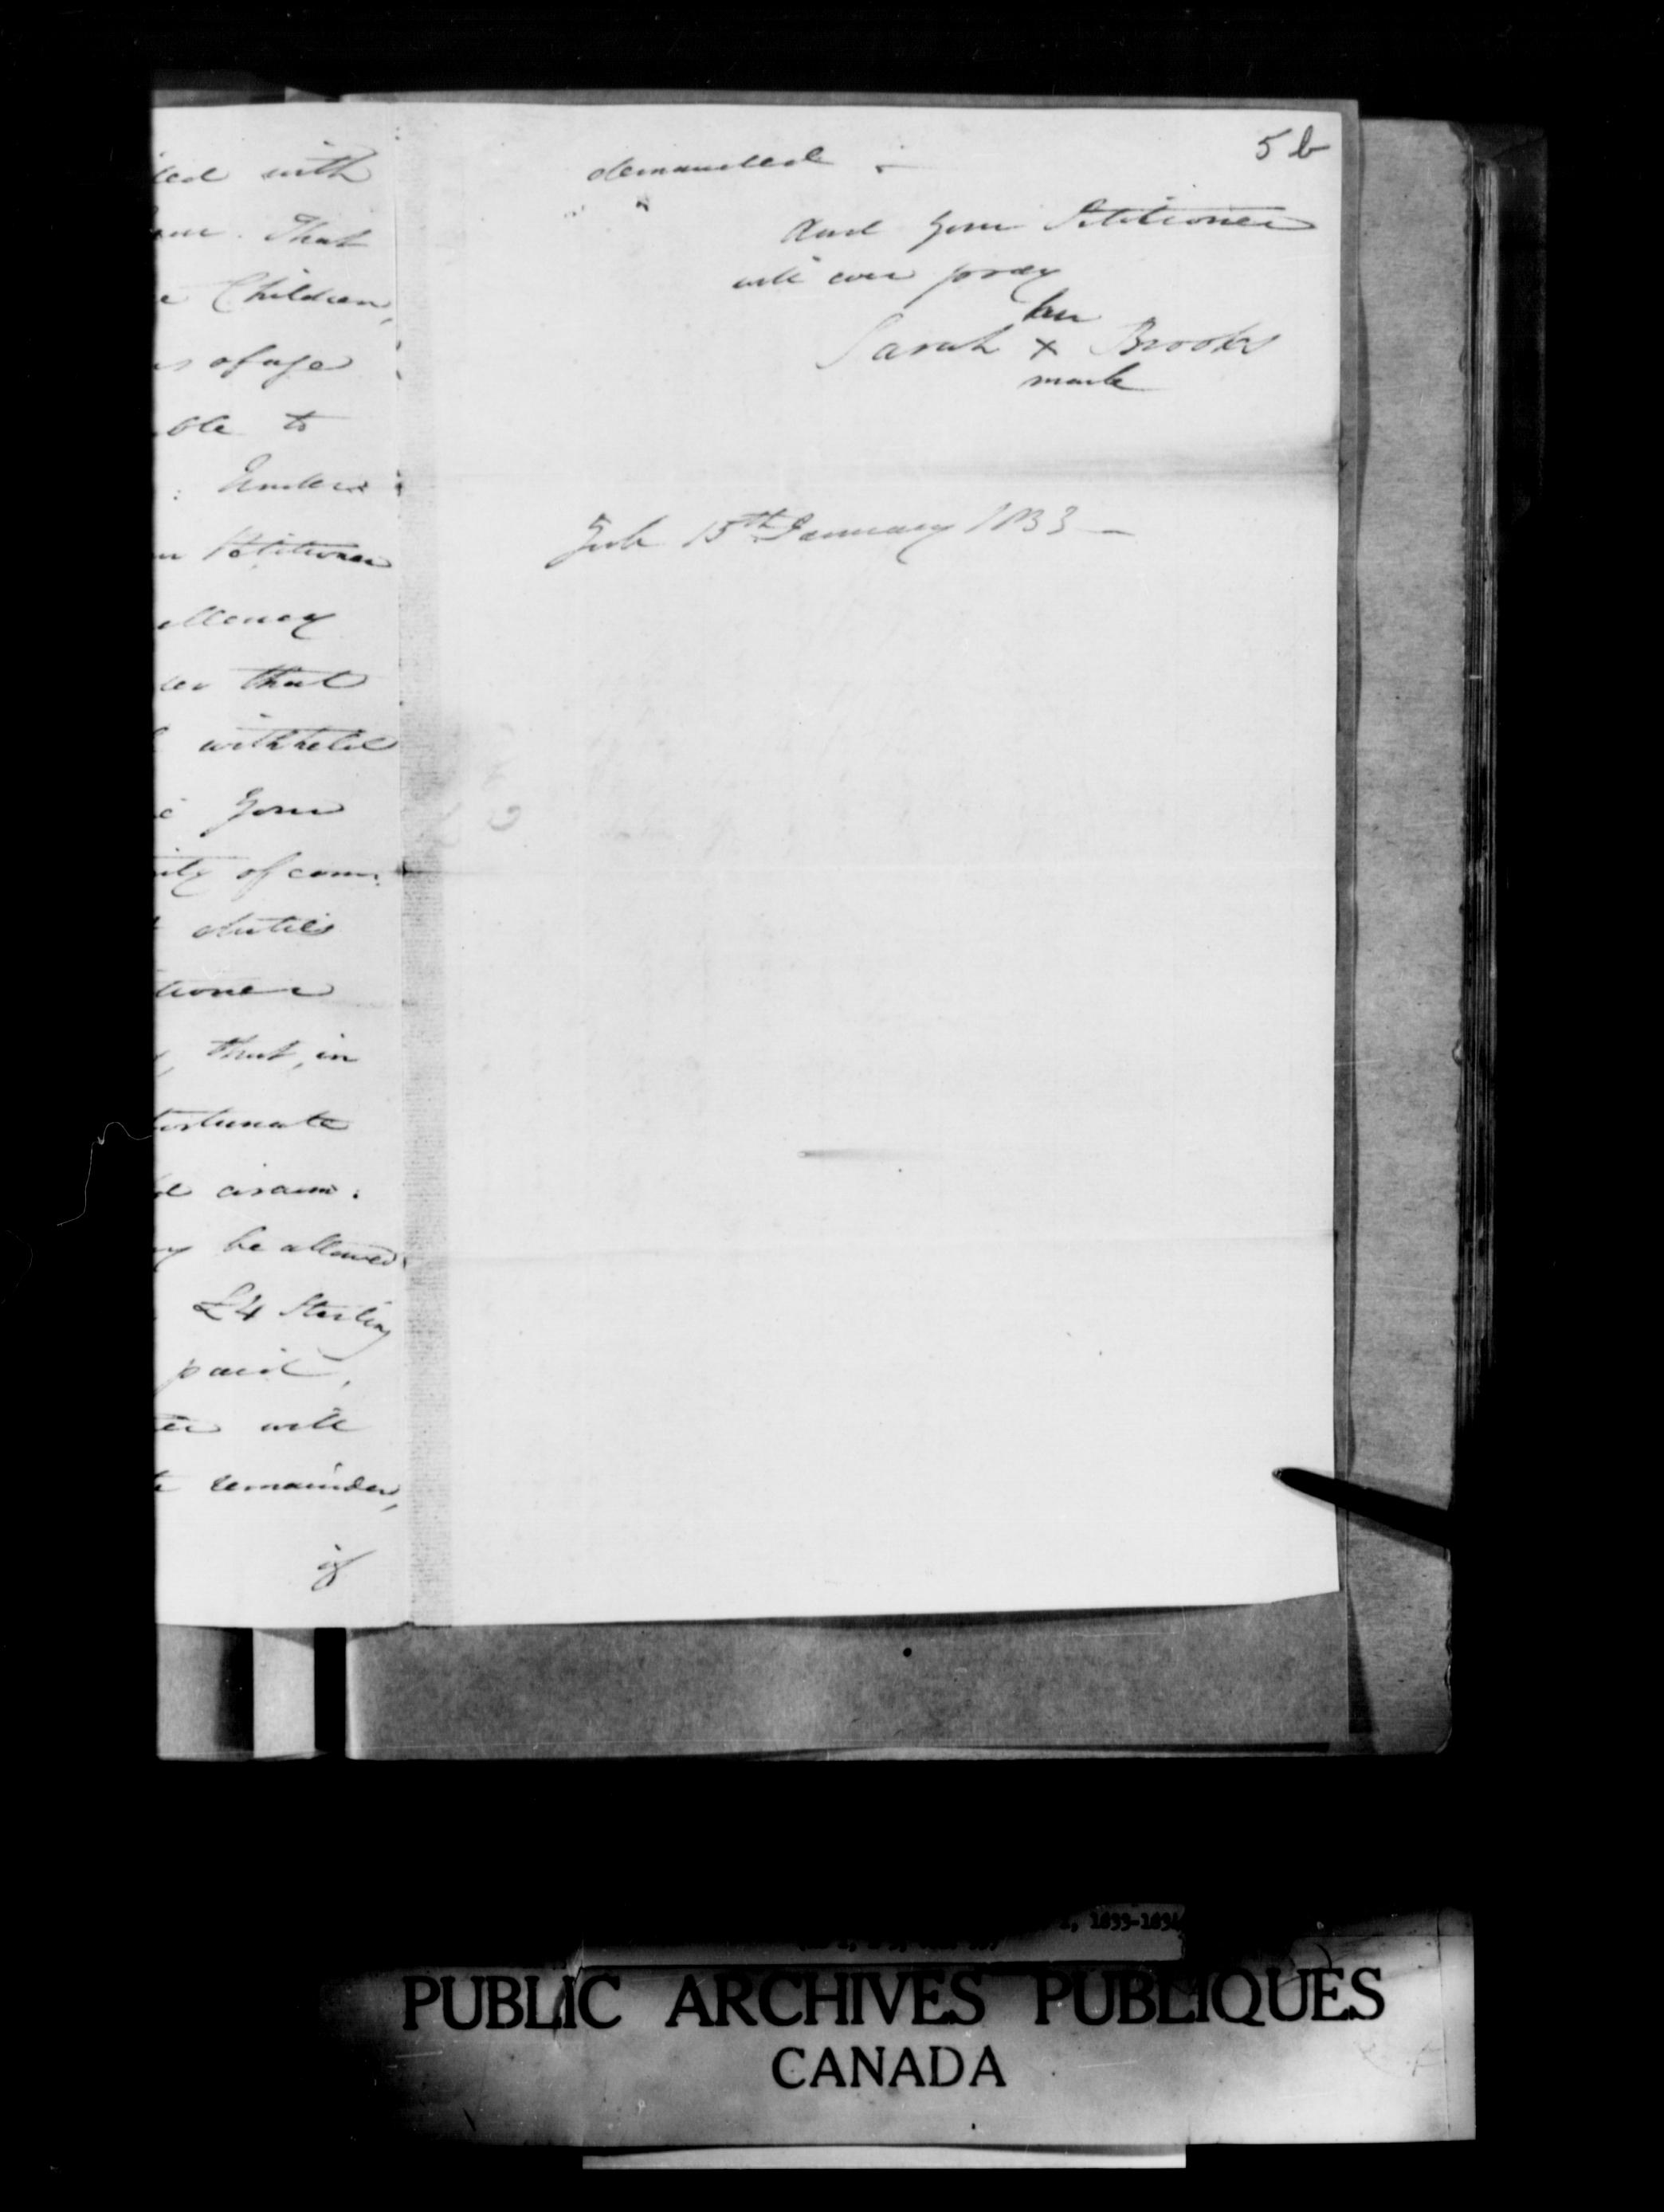 with
That
Children,
of age
to
Under
Petitioner
that
withheld
Your
of com:
duties
that, in
be allowed
£4 Sterling
paid,
will
remainder,
if
5 b
demanded.
And Your Petitioner
will ever pray
her
Sarah x Brooks
mark
York 15th January 1833 —
, 1833-1834
PUBLIC ARCHIVES PUBLIQUES
CANADA